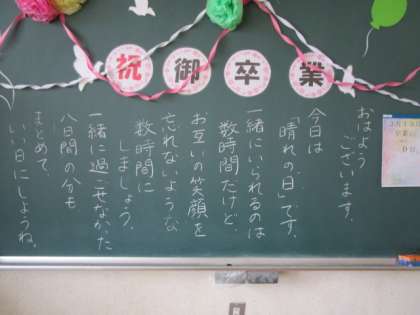 祝御卒業
おはよう
ございます。
今日は
「晴れの日」です。
一緒にいられるのは
数時間だけど、
お互いの笑顔を
忘れないような
数時間に
しましょう。
一緒に過ごせなかった
八日間の分も
まとめて、
いい日にしようね。